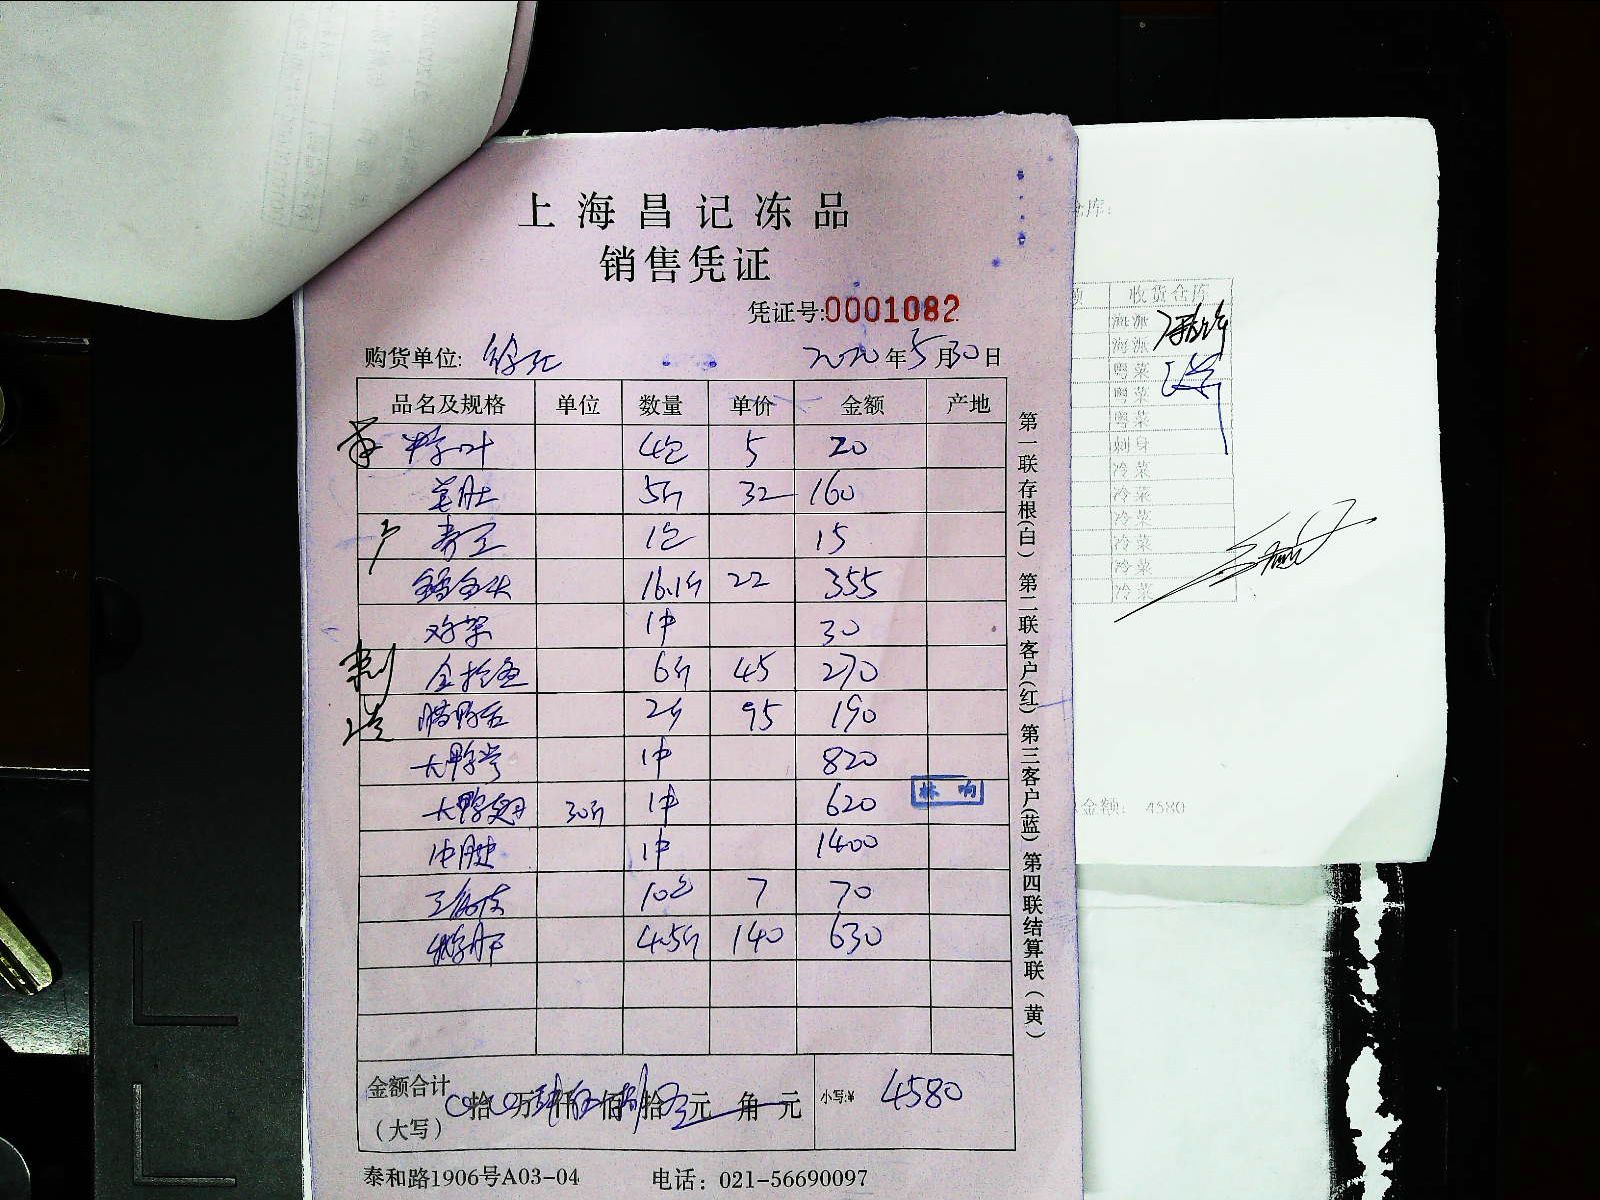 上海昌记冻品
销售凭证
凭证号:0001082
购货单位: 2020年5月30日
品名及规格 单位 数量 单价 金额 产地
粽叶 4包 5 20
毛肚 5斤 32 160
1包 15
16.1斤 22 355
鸡架 1件 30
金枪鱼 6斤 45 270
腊鸭后 2斤 95 190
大鸭掌 1件 820
大鸭翅 30斤 1件 620
林响
1件 1400
10包 7 70
4.5斤 140 630
金额合计
(大写)
拾 万肆仟伍佰捌拾 元 角 元 小写:¥ 4580
泰和路1906号A03-04 电话: 021-56690097
第一联存根(白) 第二联客户(红) 第三客户(蓝) 第四联结算联(黄)
仓库:
额 收货仓库
海派
海派
粤菜
粤菜
粤菜
刺身
冷菜
冷菜
冷菜
冷菜
冷菜
冷菜
金额: 4580